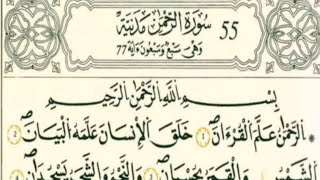 55 سُورَةُ الرَّحْمٰنِ مَدَنِيَّة
وَهِيَ سَبْعٌ وَسَبْعُونَ اٰيَة 77
بِسْمِ اللّٰهِ الرَّحْمٰنِ الرَّحِيمِ
اَلرَّحْمٰنُ عَلَّمَ الْقُرْءَانَ ۝ خَلَقَ الْاِنْسَانَ عَلَّمَهُ الْبَيَانَ ۝
الشَّمْسُ وَالْقَمَرُ بِحُسْبَانٍ ۝ وَالنَّجْمُ وَالشَّجَرُ يَسْجُدَانِ